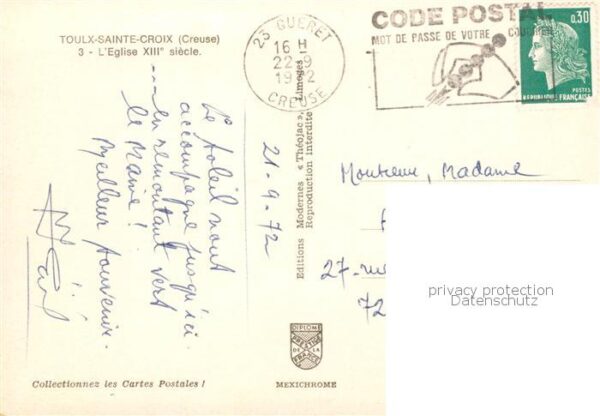 TOULX-SAINTE-CROIX (Creuse)
3 - L'Eglise XIIIe siècle.
23 GUERET
16 H
22-9
1972
CREUSE
CODE POSTAL
MOT DE PASSE DE VOTRE COURRIER
0,30
POSTES
REPUBLIQUE FRANÇAISE
Le soleil nous
accompagne jusqu'ici.
.... en remontant vers
le Maine !
Meilleur souvenir.
21-9-72
Editions Modernes « Théojac », Limoges
Reproduction Interdite
Monsieur, Madame
27- rue
72
privacy protection
Datenschutz
DIPLOME
PRESTIGE
DE LA
FRANCE
Collectionnez les Cartes Postales !
MEXICHROME